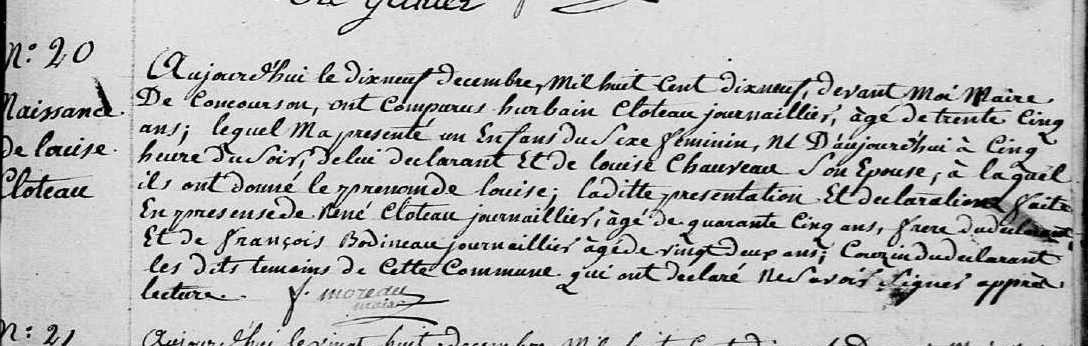 N.º 20
Naissance
de louise
Cloteau
Aujourd'hui le dixneuf decembre, Mil huit Cent dixneuf, devant Moi Maire
De Concourson, ont Comparus hurbain Cloteau journaillier, àgé de trente Cinq
ans; lequel Ma presenté un Enfans du Sexe feminin, Né D'aujourd'hui à Cinq
heure du Soir, de lui declarant Et de louise Chauveau Son Epouse, à la quel
ils ont donné le prenom de louise; laditte presentation Et declaration faite
En presense de René Cloteau journaillier, àgé de quarante Cinq ans, frere du declarant,
Et de françois Bodineau journaillier àgé de vingt deux ans; Couzin du declarant
les dits temoins de Cette Commune qui ont declaré Ne Savoir Signer apprès
lecture. f. moreau
maire
N.º 21
Aujourd'hui le vingt huit decembre Mil huit Cent